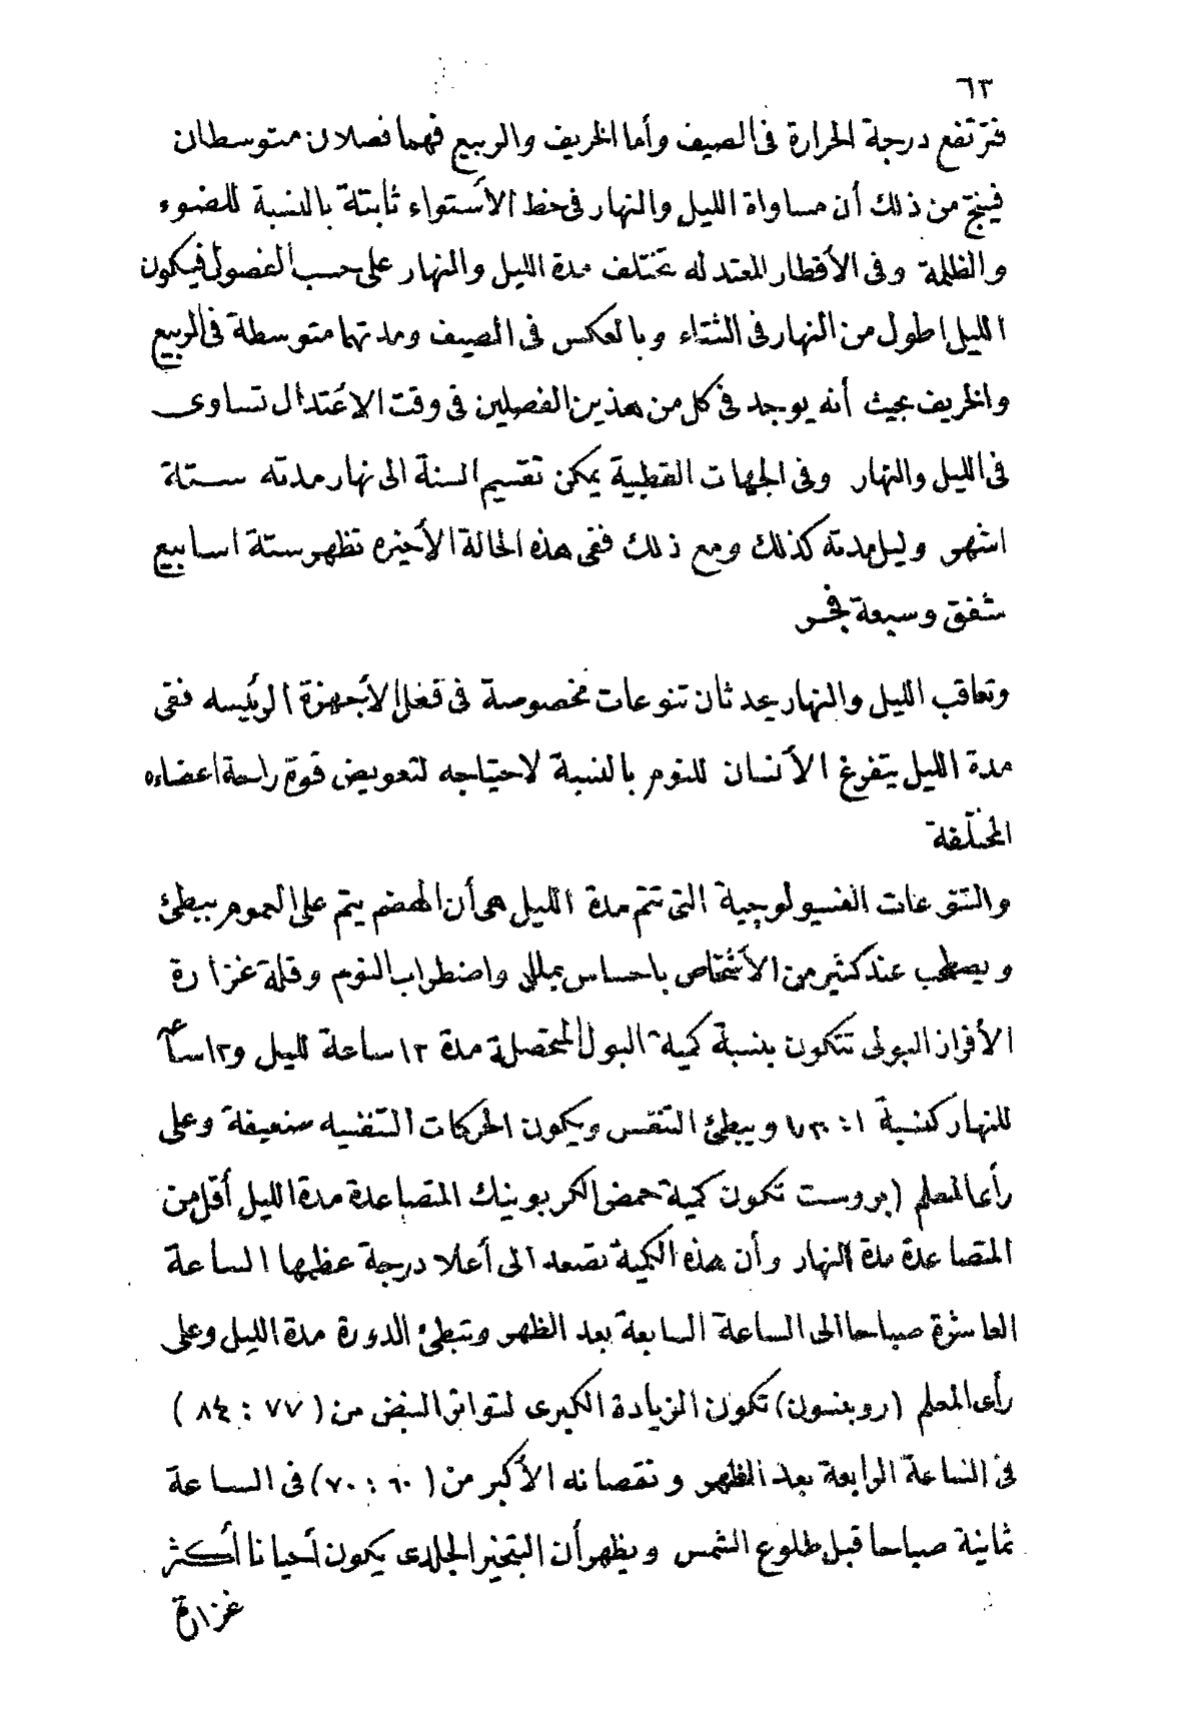 ٦٣
فترتفع درجة الحرارة فى الصيف وأما الخريف والربيع فهما فصلان متوسطان
فينتج من ذلك أن مساواة الليل والنهار فى خط الأستواء ثابتة بالنسبة للضوء
والظلمة وفى الأقطار المعتدله تختلف مدة الليل والنهار على حسب الفصول فيكون
الليل اطول من النهار فى الشتاء وبالعكس فى الصيف ومدتهما متوسطة فى الربيع
والخريف بحيث أنه يوجد فى كل من هذين الفصلين فى وقت الاعتدال تساوى
فى الليل والنهار وفى الجهات القطبية يمكن تقسيم السنة الى نهار مدته ستة
اشهر وليل مدته كذلك ومع ذلك ففى هذه الحالة الأخيره تظهر ستة اسابيع
شفق وسبعة فجر
وتعاقب الليل والنهار يحدثان تنوعات مخصوصة فى فعل الأجهزة الرئيسه ففى
مدة الليل يتفرغ الأنسان للنوم بالنسبة لاحتياجه لتعويض قوة راحة اعضاءه
المختلفة
والتنوعات الفسيولوجية التى تتم مدة الليل هى أن الهضم يتم على العموم ببطئ
ويصطحب عند كثير من الأشخاص باحساس بملل واضطراب النوم وقلة غزارة
الأفراز البولى تتكون بنسبة كمية البول المتحصلة مدة ١٢ ساعة لليل و١٢ ساعة
للنهار كنسبة ١ : ويبطئ التنفس ويكون الحركات التنفسيه ضعيفة وعلى
رأى المعلم (بروست تكون كمية حمض الكربونيك المتصاعدة مدة الليل أقل من
المتصاعدة مدة النهار وأن هذه الكمية تصعد الى أعلا درجة عظمها الساعة
العاشرة صباحا الى الساعة السابعة بعد الظهر وتبطئ الدورة مدة الليل وعلى
رأى المعلم (روبنسون) تكون الزيادة الكبرى لتواتر النبض من (٧٧ : ٨٤)
فى الساعة الرابعة بعد الظهر ونقصانه الأكبر من (٦٠ : ٧٠) فى الساعة
ثمانية صباحا قبل طلوع الشمس ويظهر أن التبخير الجلدى يكون أحيانا أكثر
غزارة